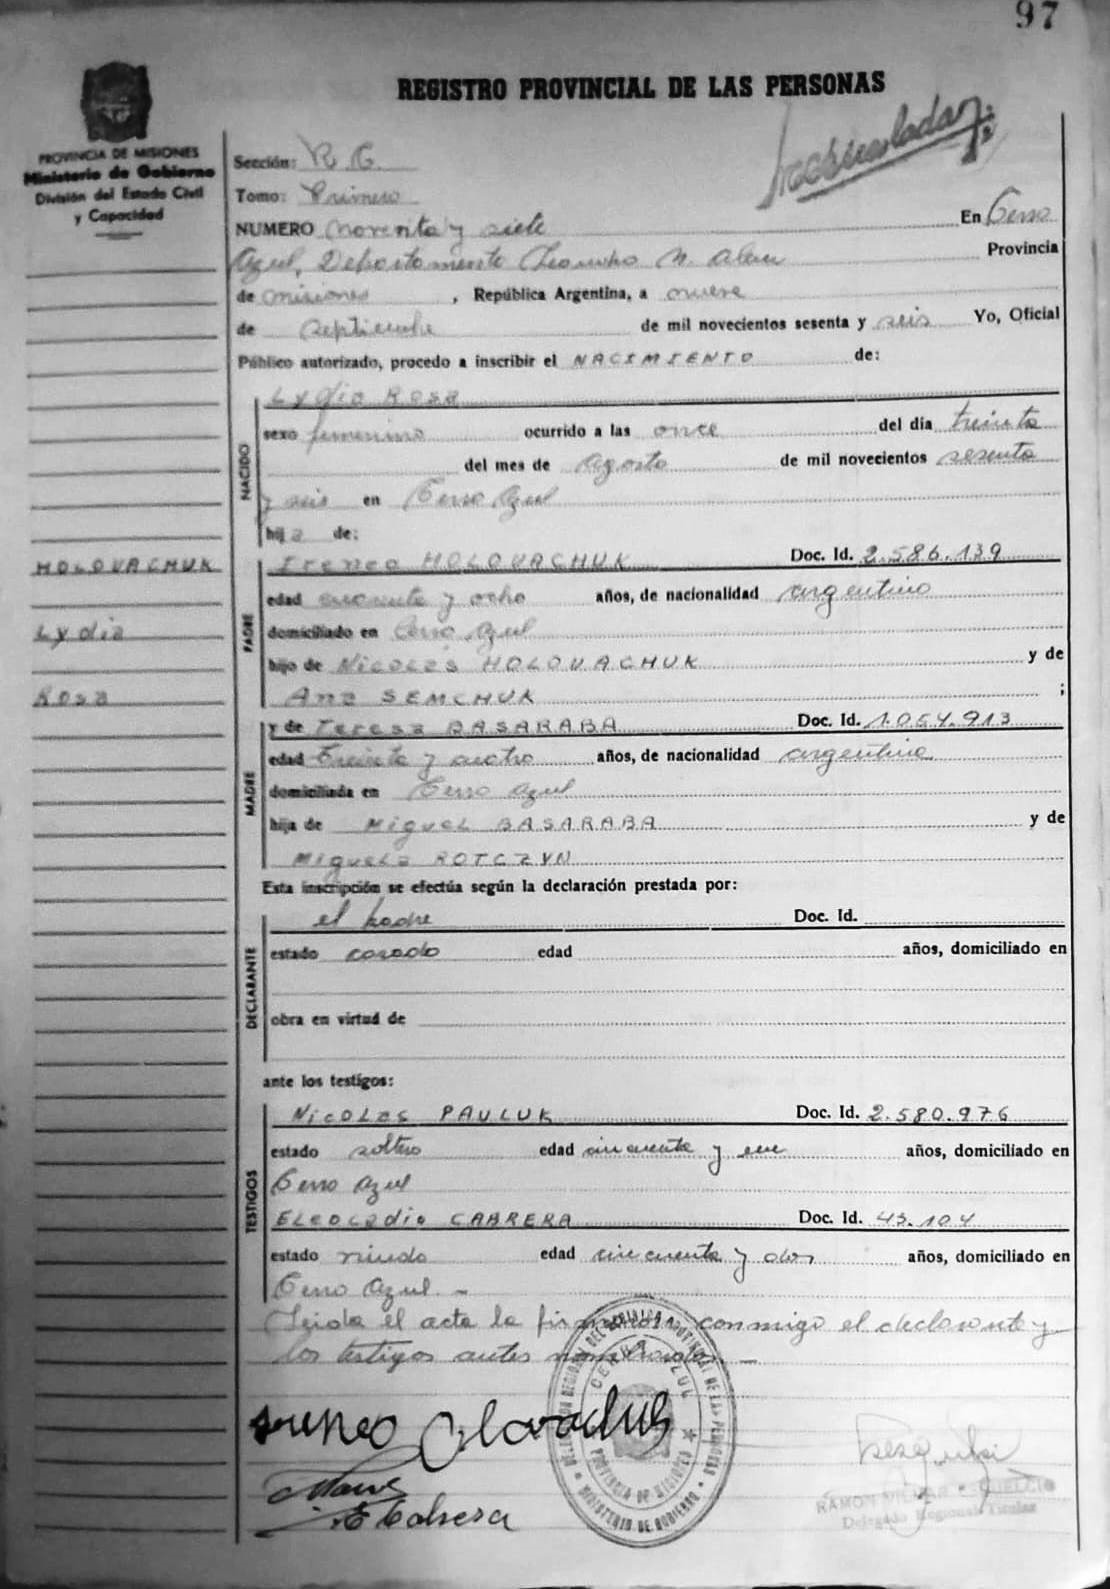 97
REGISTRO PROVINCIAL DE LAS PERSONAS
PROVINCIA DE MISIONES
Ministerio de Gobierno
División del Estado Civil
y Capacidad
Sección: R. C.
Tomo: Primero
NUMERO noventa y siete En Cerro
Azul, Departamento Leandro N. Alem Provincia
de Misiones, República Argentina, a nueve
de septiembre de mil novecientos sesenta y seis Yo, Oficial
Público autorizado, procedo a inscribir el NACIMIENTO de:
Lydia Rosa
NACIDO
sexo femenino ocurrido a las once del día treinta
del mes de agosto de mil novecientos sesenta
y seis en Cerro Azul
hija de:
HOLOVACHUK
Lydia
Rosa
PADRE
Ireneo HOLOVACHUK Doc. Id. 2.586.139
edad cuarenta y ocho años, de nacionalidad argentino
domiciliado en Cerro Azul
hijo de Nicolás HOLOVACHUK y de
Ana SEMCHUK ;
MADRE
y de Teresa BASARABA Doc. Id. 1.054.913
edad treinta y cuatro años, de nacionalidad argentina
domiciliada en Cerro Azul
hija de Miguel BASARABA y de
Miguela ROTCZYN
Esta inscripción se efectúa según la declaración prestada por:
DECLARANTE
el padre Doc. Id.
estado casado edad años, domiciliado en
obra en virtud de
ante los testigos:
TESTIGOS
Nicolas PAULUK Doc. Id. 2.580.976
estado soltero edad cincuenta y un años, domiciliado en
Cerro Azul
Eleocadio CABRERA Doc. Id. 43.104
estado viudo edad cincuenta y dos años, domiciliado en
Cerro Azul. -
Leida el acta la firman conmigo el declarante y
los testigos antes nombrados. -
CERRO AZUL
PROVINCIA DE MISIONES
MINISTERIO DE GOBIERNO
Ireneo Olovachuk
E Cabrera
RAMON
Delegado Regional Titular